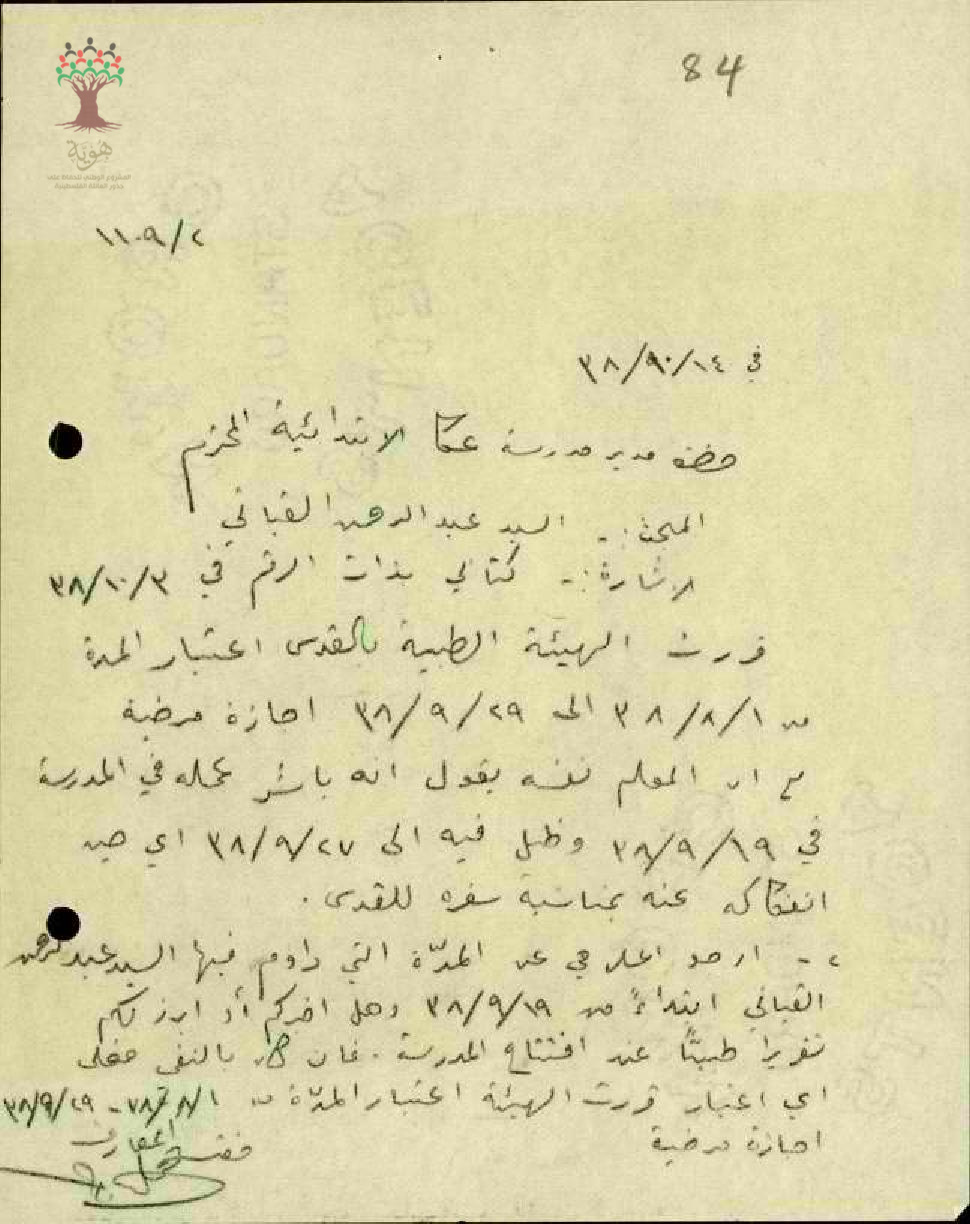 84
هوية
المشروع الوطني للحفاظ على
جذور العائلة الفلسطينية
١١٠٩/٢
في ١٤/١٠/٣٨
حضرة مدير مدرسة عكا الابتدائية المحترم
المبحث :- السيد عبد الرحمن القباني
الاشارة :- كتابي بذات الرقم في ٣/١٠/٣٨
قررت الهيئة الطبية بالقدس اعتبار المدة
من ٣٨/٨/١ الى ٣٨/٩/٢٩ اجازة مرضية
مع ان المعلم نفسه يقول انه باشر عمله في المدرسة
في ٣٨/٩/١٩ وظل فيه الى ٣٨/٩/٢٧ اي حين
انفكاكه عنه بمناسبة سفره للقدس .
٢ - ارجو اعلامي عن المدّة التي داوم فيها السيد عبد الرحمن
القباني ابتداءً من ٣٨/٩/١٩ وهل اخبركم أو ابرز لكم
تقريراً طبيّاً عند افتتاح المدرسة . فان كان بالنفي فعلى
اي اعتبار قررت الهيئة اعتبار المدّة من ٣٨/٨/١ - ٣٨/٩/٢٩
اجازة مرضية
مفتش المعارف